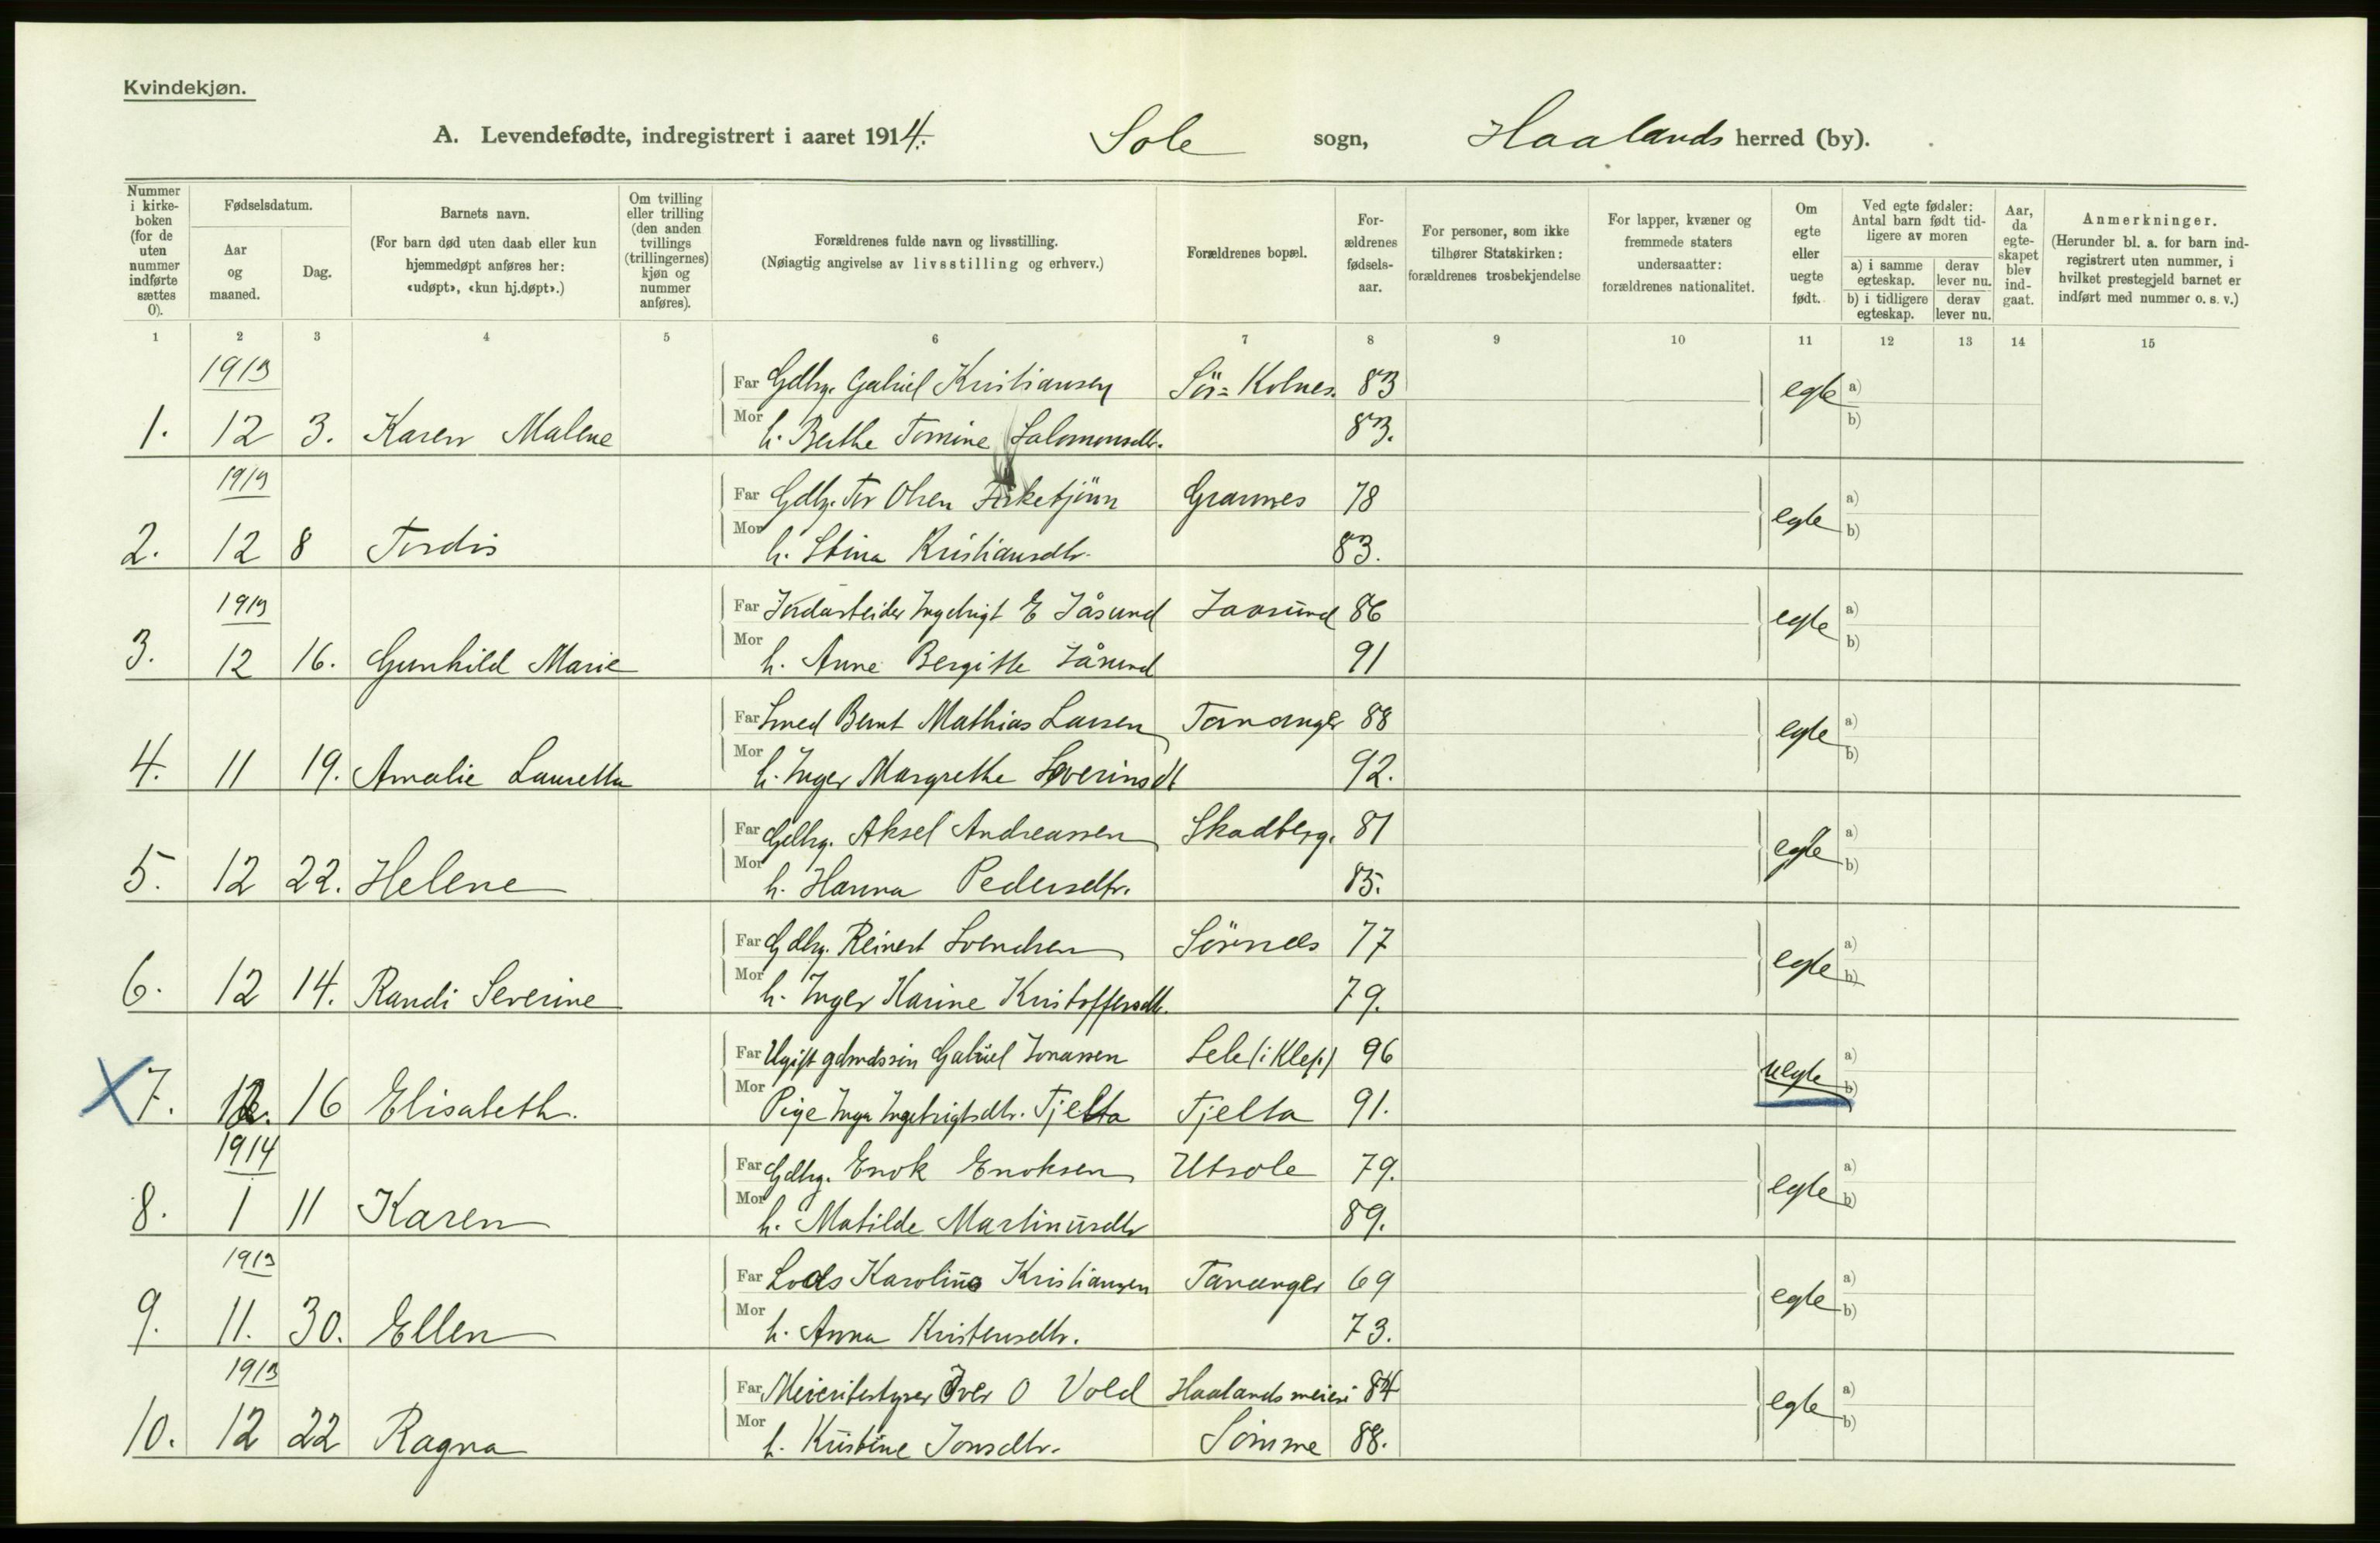 Kvindekjøn.
A. Levendefødte, indregistrert i aaret 1914. Sole sogn, Haalands herred (by).
Nummer i kirkeboken (for de uten nummer indførte sættes 0).
Fødselsdatum.
Aar og maaned.
Dag.
Barnets navn.
(For barn død uten daab eller kun hjemmedøpt anføres her: «udøpt», «kun hj.døpt».)
Om tvilling eller trilling (den anden tvillings (trillingernes) kjøn og nummer anføres).
Forældrenes fulde navn og livsstilling.
(Nøiagtig angivelse av livsstilling og erhverv.)
Forældrenes bopæl.
Forældrenes fødselsaar.
For personer, som ikke tilhører Statskirken: forældrenes trosbekjendelse
For lapper, kvæner og fremmede staters undersaatter: forældrenes nationalitet.
Om egte eller uegte født.
Ved egte fødsler: Antal barn født tidligere av moren
a) i samme egteskap. derav lever nu.
b) i tidligere egteskap. derav lever nu.
Aar, da egteskapet blev indgaat.
Anmerkninger.
(Herunder bl. a. for barn indregistrert uten nummer, i hvilket prestegjeld barnet er indført med nummer o. s. v.)
1 2 3 4 5 6 7 8 9 10 11 12 13 14 15
1913 Far Gdbrg. Gabriel Kristiansen Sör-Kolnes. 83 egte a)
1. 12 3. Karen Malene Mor h. Berthe Tomine Salomonsdtr. 83. b)
1913 Far Gdbg. Tor Olsen Grannes 78 egte a)
2. 12 8 Tordis Mor h. Stina Kristiansdtr. 83. b)
1913 Far Jordarbeider Ingebrigt E Jåsund Jaasund 86 egte a)
3. 12 16. Gunhild Marie Mor h. Anne Bergitte Jåsund 91 b)
Far Smed Bernt Mathias Larsen Tananger 88 egte a)
4. 11 19. Amalie Lauretta Mor h. Inger Margrethe Severinsdt 92. b)
Far Gdbrg. Aksel Andreassen Skadberg. 81 egte a)
5. 12 22. Helene Mor h. Hanna Pedersdtr. 85. b)
Far Gdbrg. Reinert Svendsen Sörnes 77 egte a)
6. 12 14. Randi Severine Mor h. Inger Karine Kristoffersdtr. 79. b)
Far Ugift gdmdssön Gabriel Jonassen Sele (i Klep) 96 uegte a)
X 7. 12. 16 Elisabeth. Mor Pige Inga Ingebrigtsdtr. Tjelta Tjelta 91. b)
1914 Far Gdbrg. Enok Enoksen Utsole 79. egte a)
8. 1 11 Karen Mor h. Matilde Martinusdtr 89. b)
1913 Far Lods Karolius Kristiansen Tananger 69 egte a)
9. 11. 30. Ellen Mor h. Anna Kristensdtr. 73. b)
1913 Far Meieribestyrer Iver O Vold Haalands meieri 84 egte a)
10. 12 22 Ragna Mor h. Kristine Jonsdtr. Sömme 88. b)